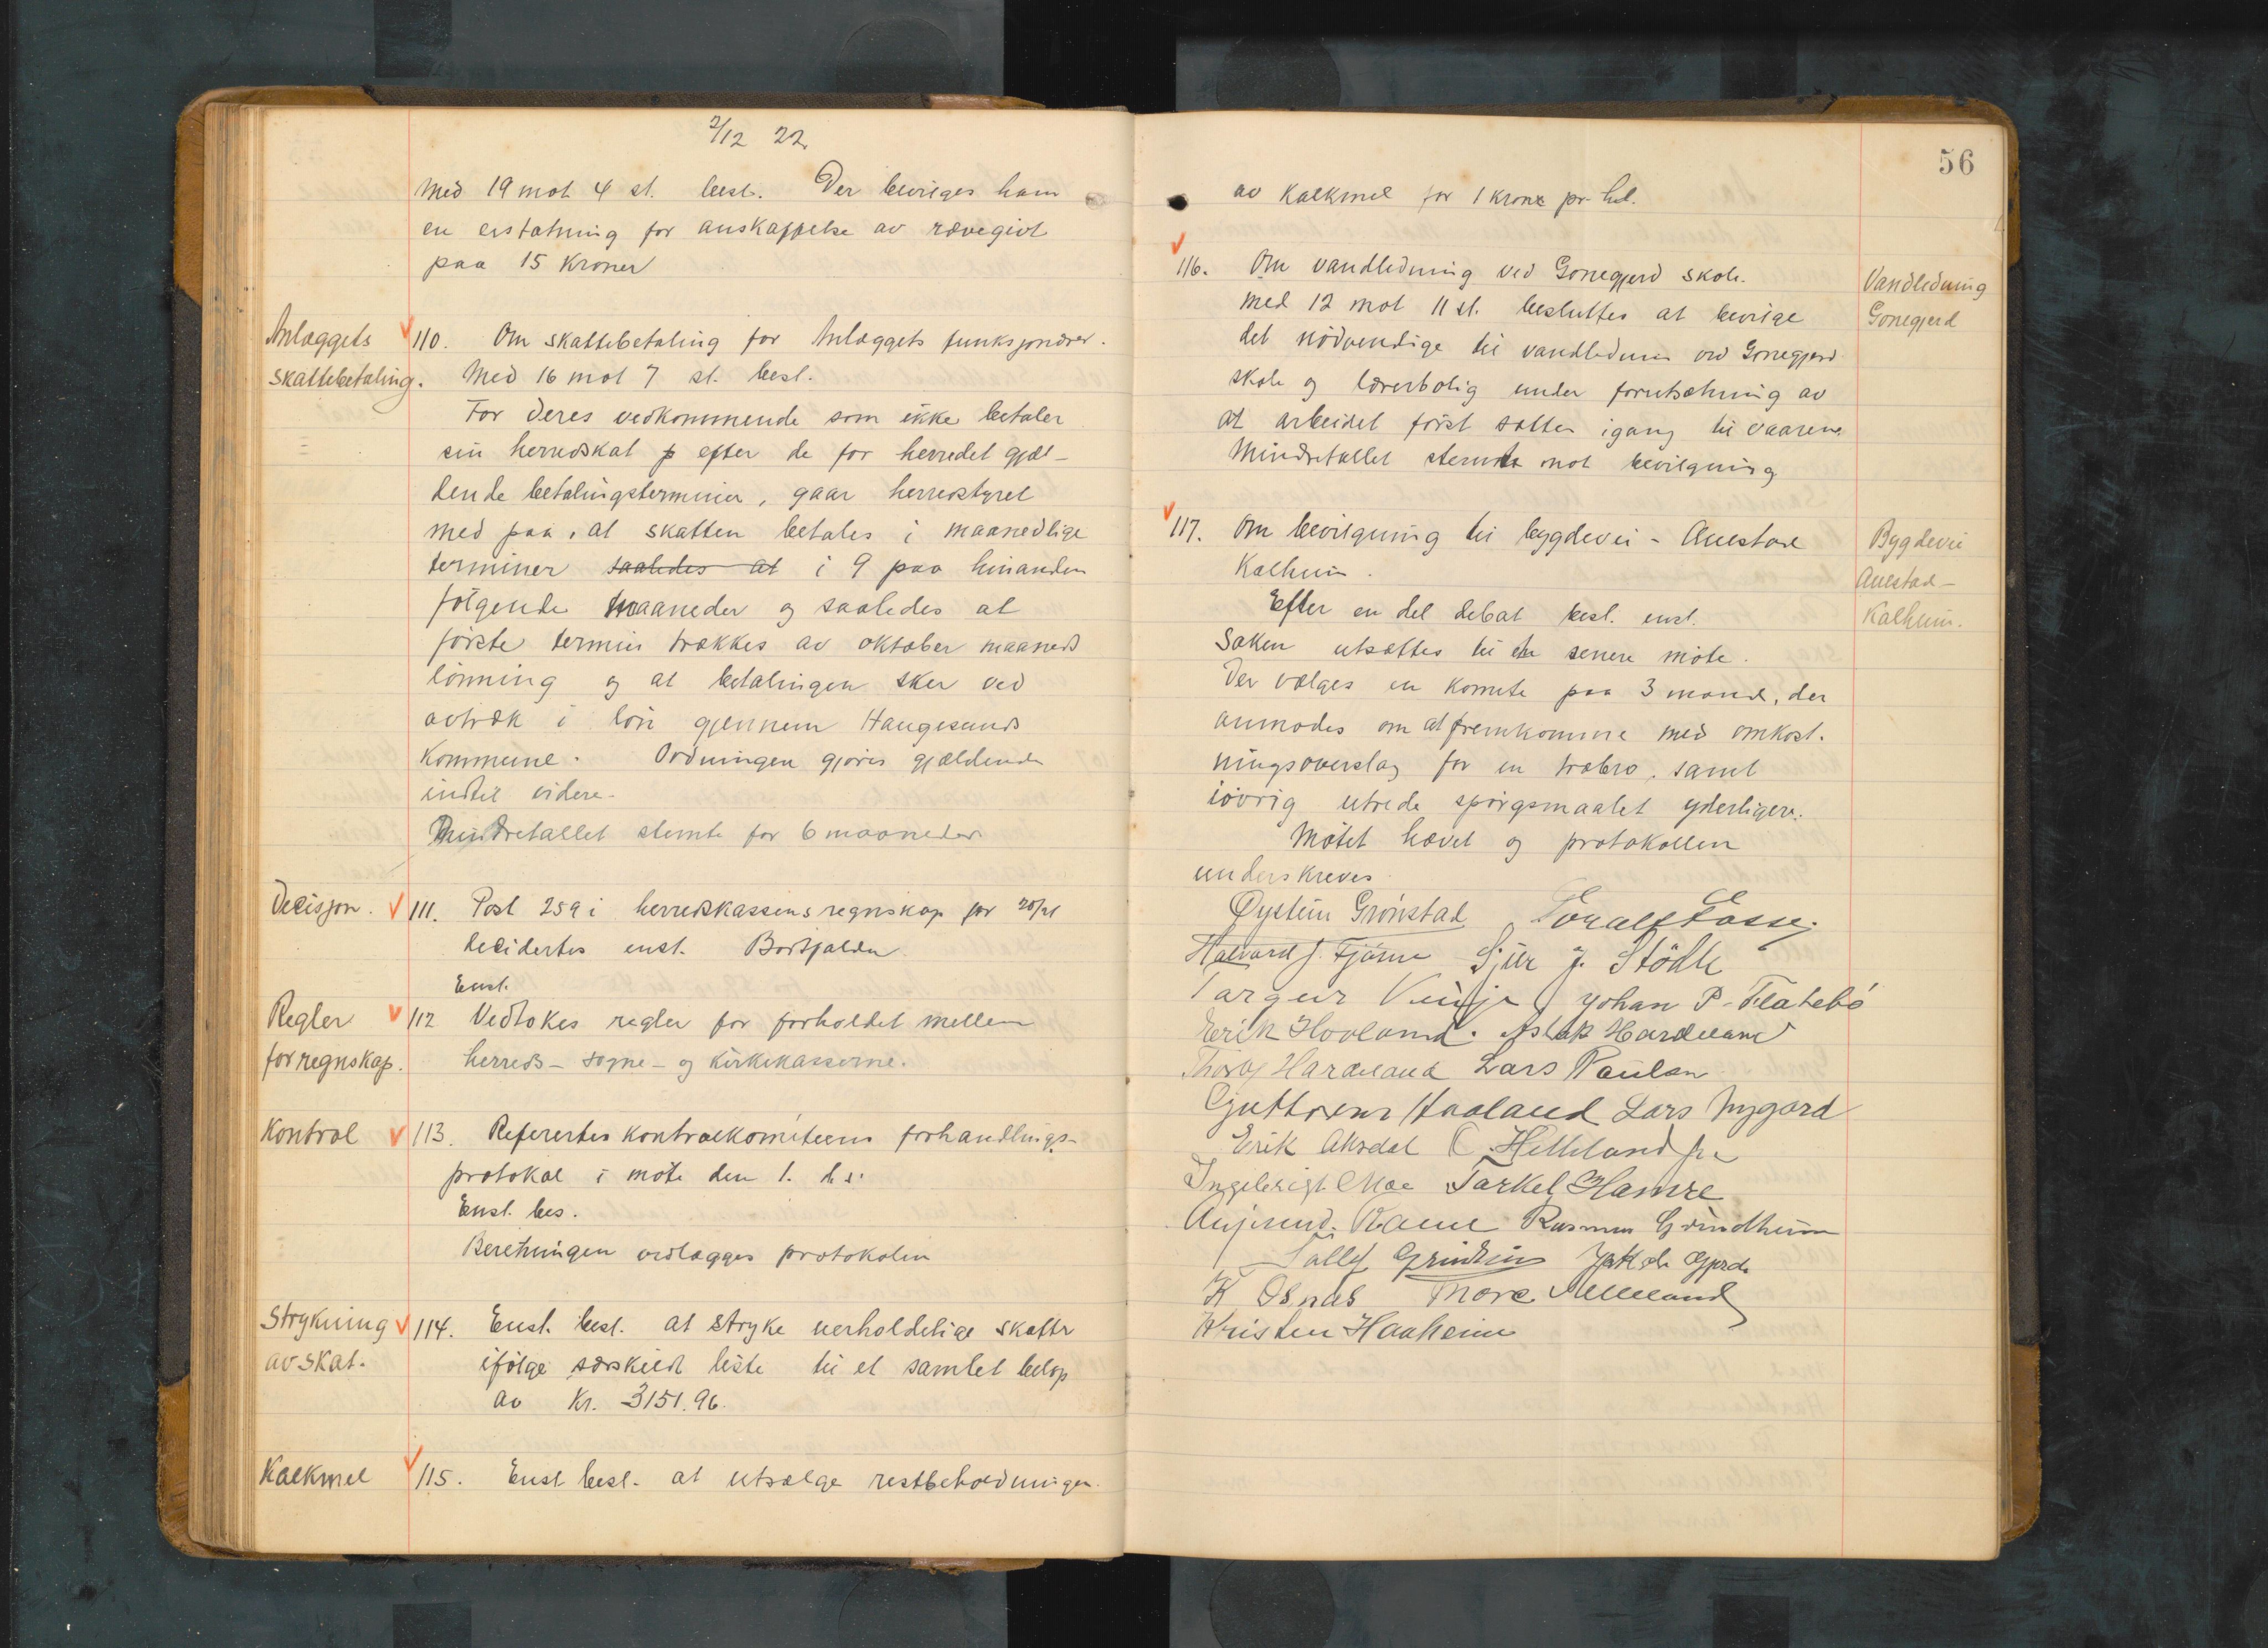 2/12 22.
med 19 mot 4 st. besl. Der bevilges ham
en erstatning for anskaffelse av rævegivt
paa 15 Kroner
Anlæggets
skattebetaling.
110. Om skattebetaling for Anlæggets funksjonærer.
Med 16 mot 7 st. besl.
For deres vedkommende som ikke betaler
sin herredskat efter de for herredet gjæl-
dende betalingsterminer, gaar herredstyret
med paa, at skatten betales i maanedlige
terminer saaledes at i 9 paa hinanden
følgende maaneder og saaledes at
første termin trækkes av oktober maaneds
lønning og at betalingen sker ved
avtræk i løn gjennem Haugesunds
Kommune. Ordningen gjøres gjældende
indtil videre.
Mindretallet stemte for 6 maaneder
Decisjon.
111. Post 259 i herredskassens regnskap for 20/21
decidertes enst. Bortfalder
Enst.
Regler
for regnskap.
112 Vedtokes regler for forholdet mellem
herreds- sogne- og kirkekasserne.
Kontrol
113. Refertes kontrolkomiteens forhandlings-
protokol i møte den 1. ds.
Enst. bes.
Beretningen vedlægges protokolen
Strykning
av skat.
114. Enst. besl. at stryke uerholdelige skatter
ifølge særskild liste til et samlet beløp
av Kr. 3151.96.
Kalkmel
115. Enst besl. at utsælge restbeholdningen
56
av Kalkmel for 1 krone pr. hl.
116. Om vandledning ved Gonegjerd skole.
Vandledning
Gonegjerd
med 12 mot 11 st. besluttes at bevilge
det nödvendige til vandledning ved Gonegjerd
skole og lærerbolig under forutsætning av
at arbeidet först sættes igang til vaaren.
Mindretallet stemte mot bevilgning
117. Om bevilgning til bygdevei - Auestad
Kalheim.
Bygdevei
Auestad-
Kalheim.
Efter en del debat besl. enst.
Saken utsættes til et senere møte.
Der vælges en komite paa 3 mand, der
anmodes om at fremkomme med omkost-
ningsoverslag for en træbro, samt
iøvrig utrede spørgsmaalet yderligere.
Møtet hævet og protokollen
underskreves.
Øystein Grönstad Toralf Fosse
Halvard J. Fjösne Sjur J. Stödle
Torger Vinje Johan P. Flatebö
Erik Hovland. Aslak Hardeland
Hardeland Lars Paulsen
Guttorm Haaland Lars Nygard
Erik Aksdal O. Helleland
Ingebrigt Moe Torkel Hamre
Rame Rasmus Grindheim
Tollef Grindheim Jakob Gjerde
K Osnes Tore Mælland
Kristen Haaheim